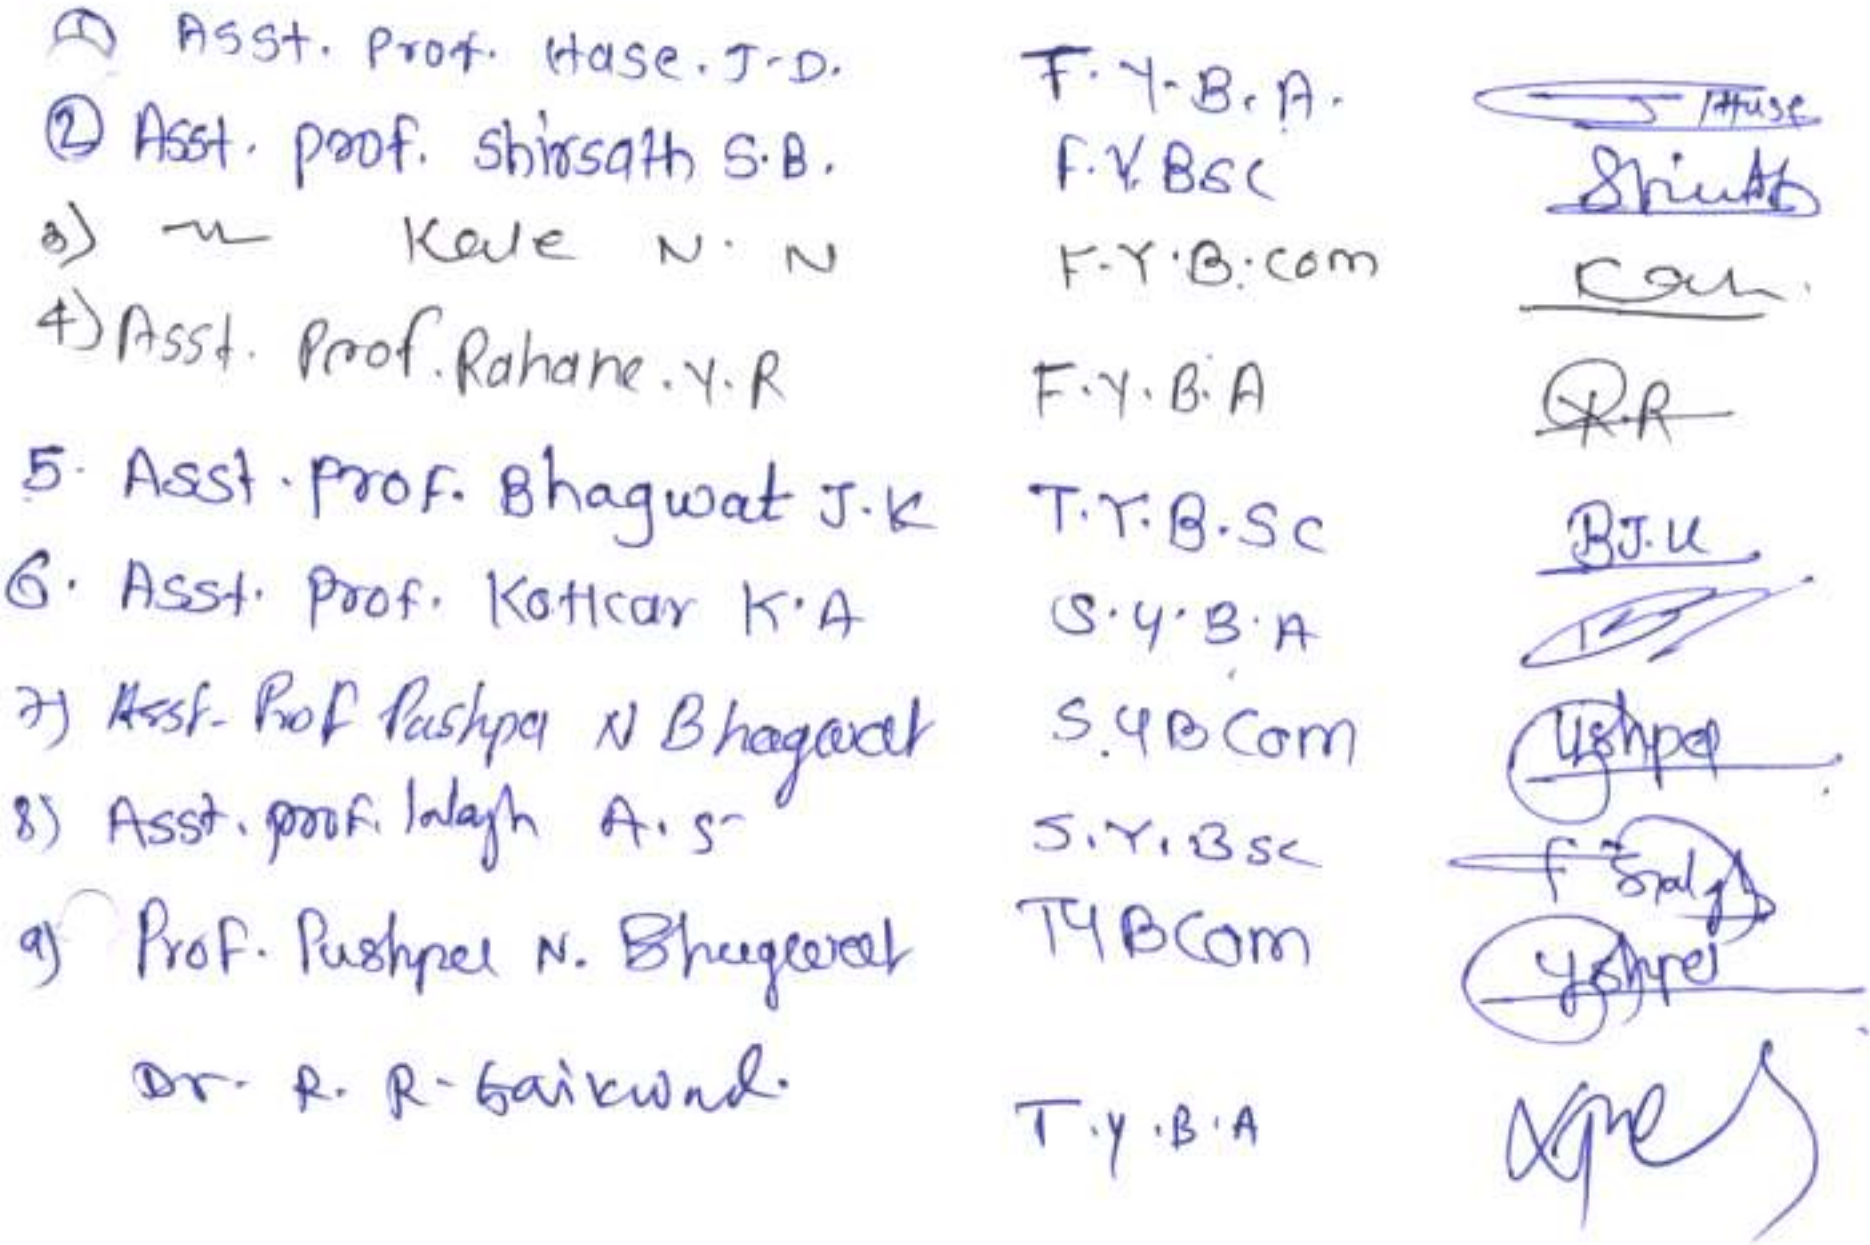 ① Asst. Prof. Hase. J. D. F.Y.B.A. J Hase
② Asst. prof. Shirsath S.B. F.Y.BSC
3) Kale N. N F.Y.B.com
4) Asst. Prof. Rahane. Y. R F.Y.B.A Y.R
5. Asst. Prof. Bhagwat J.K T.Y.B.Sc B J.K
6. Asst. Prof. Kotkar K.A S.Y.B.A
7) Asst. Prof Pushpa N Bhagwat S.Y B Com Pushpa
8) Asst. prof. A.S S.Y.Bsc
9) Prof. Pushpa N. Bhagwat TY BCom Pushpa
Dr. R. R. Gaikwad. T.Y.B.A